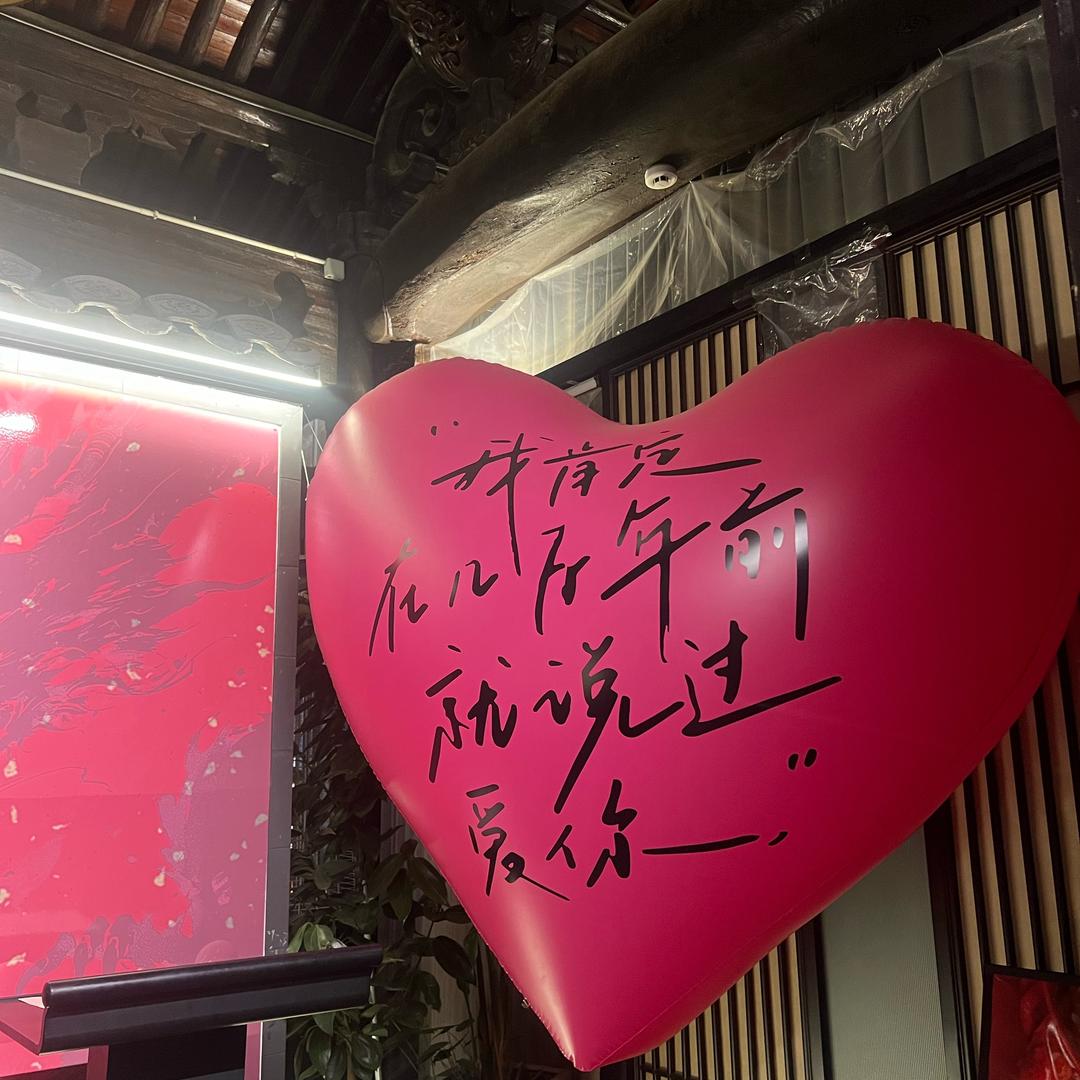 “我肯定
在几百年前
就说过
爱你”